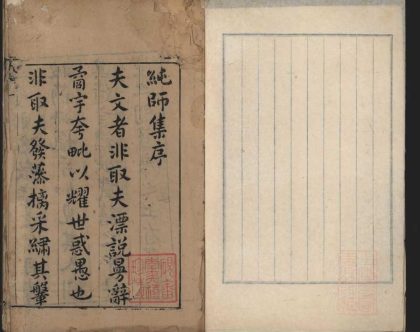 純師集序
夫文者非取夫漂說曼辭
矞宇夸毗以耀世惑愚也
非取夫發藻摛采繡其鞶